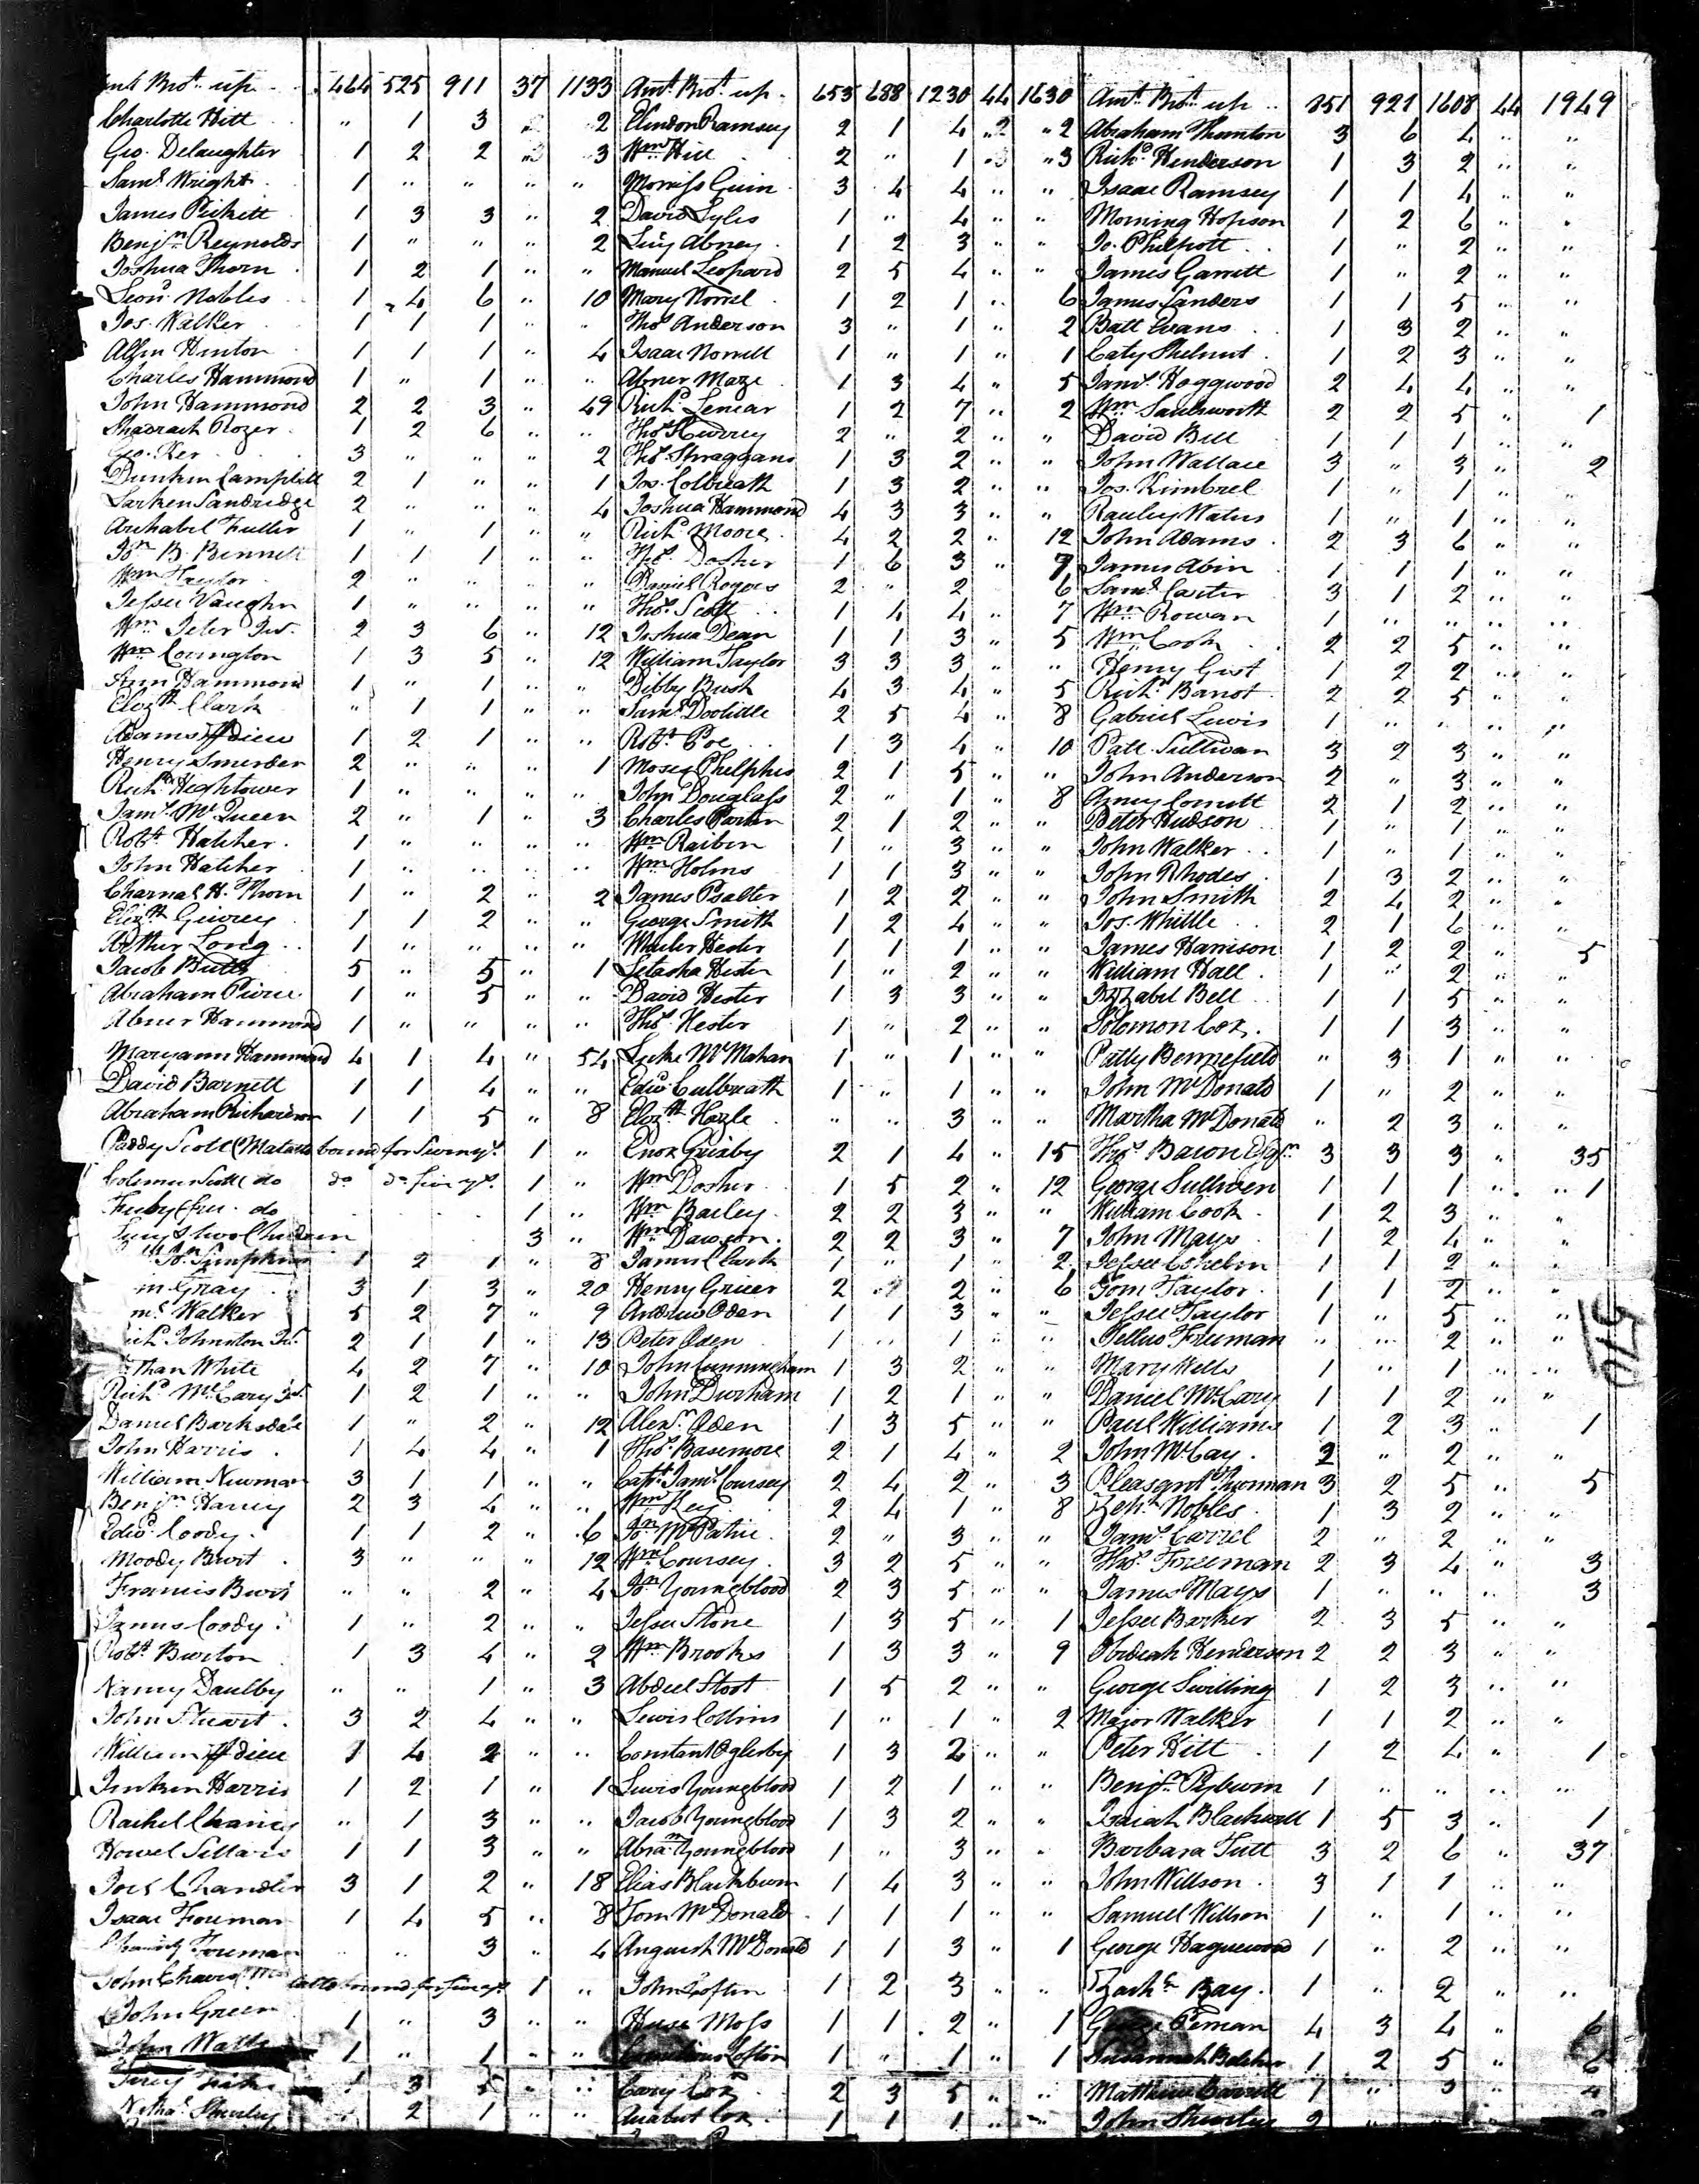 Brot. up 464 525 911 37 1133
Charlotte Hitt " 1 3 " 2
Geo. Delaughter 1 2 2 " 3
Saml. Wright 1 " " " "
James Pickett 1 3 3 " 2
Benjn. Reynolds 1 " " " 2
Joshua Thorn 1 2 1 " "
Leond. Nobles 1 4 6 " 10
Jos. Walker 1 1 1 " "
Allin Hinton 1 1 1 " 4
Charles Hammond 1 " 1 " "
John Hammond 2 2 3 " 49
Shadrach Rozer 1 2 6 " "
Geo. Ker 3 " " " 2
Dunkin Campbell 2 1 " " 1
Larken Sandridge 2 " " " 4
Archabel Fuller 1 " 1 " "
Jon. B. Bennett 1 1 1 " "
Wm. Taylor 2 " " " "
Jessee Vaughn 1 " " " "
Wm. Jeter Jur. 2 3 6 " 12
Wm. Covington 1 3 5 " 12
Ann Hammond 1 " 1 " "
Elizth. Clark " 1 1 " "
Adams 1 2 1 " "
Henry Smerder 2 " " " 1
Richd. Hightower 1 " " " "
Jams. McQueen 2 " 1 " 3
Robt. Hatcher 1 " " " "
John Hatcher 1 " " " "
Charnal H. Thorn 1 " 2 " 2
Elizth. 1 1 2 " "
Arthur Long 1 " " " "
Jacob Butts 5 " 5 " 1
Abraham Pierce 1 " 5 " "
Abner Hammond 1 " " " "
Maryann Hammond 4 1 4 " 54
David Barnett 1 1 4 " "
Abraham Richardson 1 1 5 " 8
Paddy Scott (Malatto bound for 1 "
Colemen Scott do do do 1 "
do 1 "
3 "
Simpkins 1 2 1 " 8
m Gray 3 1 3 " 20
ms. Walker 5 2 7 " 9
Johnston Jur. 2 1 1 " 13
than White 4 2 7 " 10
Richd. McCary 1 2 1 " "
Daniel Barksdale 1 " 2 " 12
John Harris 1 4 4 " 1
William Newman 3 1 1 " "
Benjn. Harvey 2 3 4 " "
Edwd. Coody 1 1 2 " 6
Moody Burt 3 " " " 12
Francis Burt " " 2 " 4
James Coody 1 " 2 " "
Robt. Burton 1 3 4 " 2
Nancy Daulby " " 1 " 3
John Stuart 3 2 4 " "
William 1 4 2 " "
Jinken Harris 1 2 1 " 1
Rachel Chaney " 1 3 " "
Howel Sellars 1 1 3 " "
Joel Chandler 3 1 2 " 18
Isaac Foreman 1 4 5 " 8
Foreman " " 3 " 4
John 1 "
John Green 1 " 3 " "
John Watts 1 " 1 " "
3 5 " "
Shurley 2 1 " "
Amt. Brot. up 653 688 1230 44 1630
Clindon Ramsey 2 1 4 " 2
Wm. Hill 2 " 1 " 3
Morriss Guin 3 4 4 " "
David Lyles 1 " 4 " "
Abney 1 2 3 " "
Manuel Leopard 2 5 4 " "
Mary Norrel 1 2 1 " 6
Thos. Anderson 3 " 1 " 2
Isaac Norrell 1 " 1 " 1
Abner Maze 1 3 4 " 5
Richd. Lenear 1 2 7 " 2
Thos. 2 " 2 " "
Thos. Shraggans 1 3 2 " "
Jos. Colbreath 1 3 2 " "
Joshua Hammond 4 3 3 " "
Richd. Moore 4 2 2 " 12
Thos. Dosher 1 6 3 " 7
Daniel Rogers 2 " 2 " 6
Thos. Scott 1 4 4 " 7
Joshua Dean 1 1 3 " 5
William Taylor 3 3 3 " "
Dibby Bush 4 3 4 " 5
Saml. Doolittle 2 5 4 " 8
Robt. Poe 1 3 4 " 10
Moses Phelphes 2 1 5 " "
John Douglass 2 " 1 " 8
Charles Partin 2 1 2 " "
Wm. Raiben 1 " 3 " "
Wm. Holms 1 1 3 " "
James Psalter 1 2 2 " "
George Smith 1 2 4 " "
Hester 1 1 1 " "
Letasha Hester 1 " 2 " "
David Hester 1 3 3 " "
Thos. Hester 1 " 2 " "
Luke McMahan 1 " 1 " "
Edwd. Culbreath 1 " 1 " "
Elizth. Hazle " " 3 " "
Enox Grizby 2 1 4 " 15
Wm. Dosher 1 5 2 " 12
Wm. Bailey 2 2 3 " "
Wm. Dawson 2 2 3 " 7
James Clark 1 " 1 " 2
Henry Gricer 2 " 2 " 6
Andrew Oden 1 1 3 " "
Peter Oden 1 " 1 " "
John Cunningham 1 3 2 " "
John Durham 1 2 1 " "
Alexr. Oden 1 3 5 " "
Thos. Basemore 2 1 4 " 2
Capt. Jams. Coursey 2 4 2 " 3
Wm. Key 2 4 1 " 8
Jon. McPatrie 2 " 3 " "
Wm. Coursey 3 2 5 " "
Jon. Youngblood 2 3 5 " "
Jessee Stone 1 3 5 " 1
Wm. Brooks 1 3 3 " 9
Abdeel Stoot 1 5 2 " "
Lewis Collins 1 " 1 " 2
Constant Oglesby 1 3 2 " "
Lewis Youngblood 1 2 1 " "
Jacob Youngblood 1 3 2 " "
Abram. Youngblood 1 " 3 " "
Elias Blackburn 1 4 3 " "
Tom McDonald 1 1 1 " "
Anguish McDonald 1 1 3 " 1
John Loftin 1 2 3 " "
Moss 1 1 2 " 1
Loftin 1 " 1 " 1
Cary Cox 2 3 5 " "
Cox 1 1 1 " "
Amt. Brot. up 851 921 1608 44 1949
Abraham Thornton 3 6 4 " "
Richd. Henderson 1 3 2 " "
Isaac Ramsey 1 1 4 " "
Morning Hopson 1 2 6 " "
Jo. Philpott 1 " 2 " "
James Garrett 1 " 2 " "
James Sanders 1 1 5 " "
Batt Evans 1 3 2 " "
Caty Shelnut 1 2 3 " "
Jams. Hoggwood 2 4 4 " "
Wm. Saulsworth 2 2 5 " 1
David Bell 1 1 1 " "
John Wallace 3 " 3 " 2
Jos. Kimbrel 1 " 1 " "
Rauley Waters 1 " 1 " "
John Adams 2 3 6 " "
James Abin 1 1 1 " "
Saml. Carter 3 1 2 " "
Wm. Rowan 1 " " " "
Wm. Cook 2 2 5 " "
Henry Gist 1 2 2 " "
Richd. Barrot 2 2 5 " "
Gabriel Lewis 1 " " " "
Patt. Sullivan 3 2 3 " "
John Anderson 2 " 3 " "
Amey Cornett 2 1 2 " "
Peter Hudson 1 " 1 " "
John Walker 1 " 1 " "
John Rhodes 1 3 2 " "
John Smith 2 4 2 " "
Jos. Whittle 2 1 6 " "
James Harrison 1 2 2 " 5
William Hall 1 " 2 " "
Bell 1 1 5 " "
Solomon Cox 1 1 3 " "
Patty Bennefield " 3 1 " "
John McDonald 1 " 2 " "
Martha McDonald " 2 3 " "
Thos. Bacon Esqr. 3 3 3 " 35
George Sulliven 1 1 1 " 1
William Cook 1 2 3 " "
John Mays 1 2 4 " "
Jessee 1 1 2 " "
Tom Taylor 1 1 2 " "
Jessee Taylor 1 " 5 " "
Freeman " " 2 " "
Mary Wells 1 " 1 " "
Daniel McCary 1 1 2 " "
Paul Williams 1 2 3 " 1
John McCay 2 " 2 " "
Pleasant Thurman 3 2 5 " 5
Nobles 1 3 2 " "
Jams. Carrel 2 " 2 " "
Thos. Freeman 2 3 4 " 3
James Mays 1 " " " 3
Jessee Barker 2 3 5 " "
Obdeah Henderson 2 2 3 " "
George Swilling 1 2 3 " "
Major Walker 1 1 2 " "
Peter Hitt 1 2 4 " 1
Benjn. Ryburn 1 " " " "
Isaiah Blackwell 1 5 3 " 1
Barbara Tutt 3 2 6 " 37
John Willson 3 1 1 " "
Samuel Willson 1 " 1 " "
George Haguewood 1 " 2 " "
Zachr. Bay 1 " 2 " "
4 3 4 " 6
Susannah Belcher 1 2 5 " 6
Matthew Barrett 1 " 3 "
John Shurley 2
515